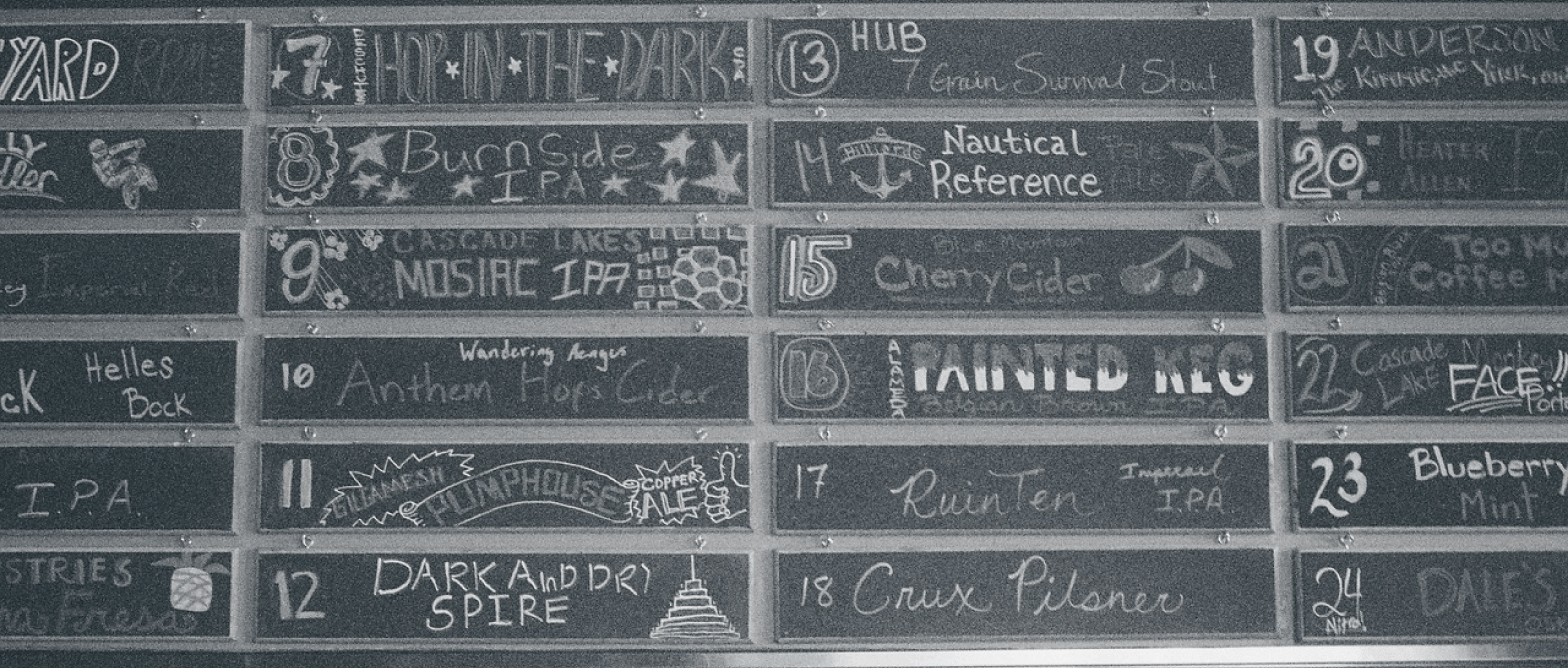 YARD
I.P.A.
Helles
Bock
7 HOP·IN·THE·DARK
8 BurnSide
I.P.A
9 CASCADE LAKES
MOSIAC IPA
10 Wandering Aengus
Anthem Hops Cider
11 GILGAMESH PUMPHOUSE COPPER
ALE
12 DARK AnD DRY
SPIRE
13 HUB
7 Grain Survival Stout
14 Nautical Pale
Reference Ale
15 Blue Mountain
Cherry Cider
16 ALAMEDA PAINTED KEG
Belgian Brown I.P.A.
17 RuinTen Imperial
I.P.A
18 Crux Pilsner
19 ANDERSON
The Kimmie, the Yink, and
20 HEATER
ALLEN
21 TOO M
Coffee
22 Cascade Monkey
LAKE FACE!!
Porter
23 Blueberry
Mint
24 DALE'S
Nitro!